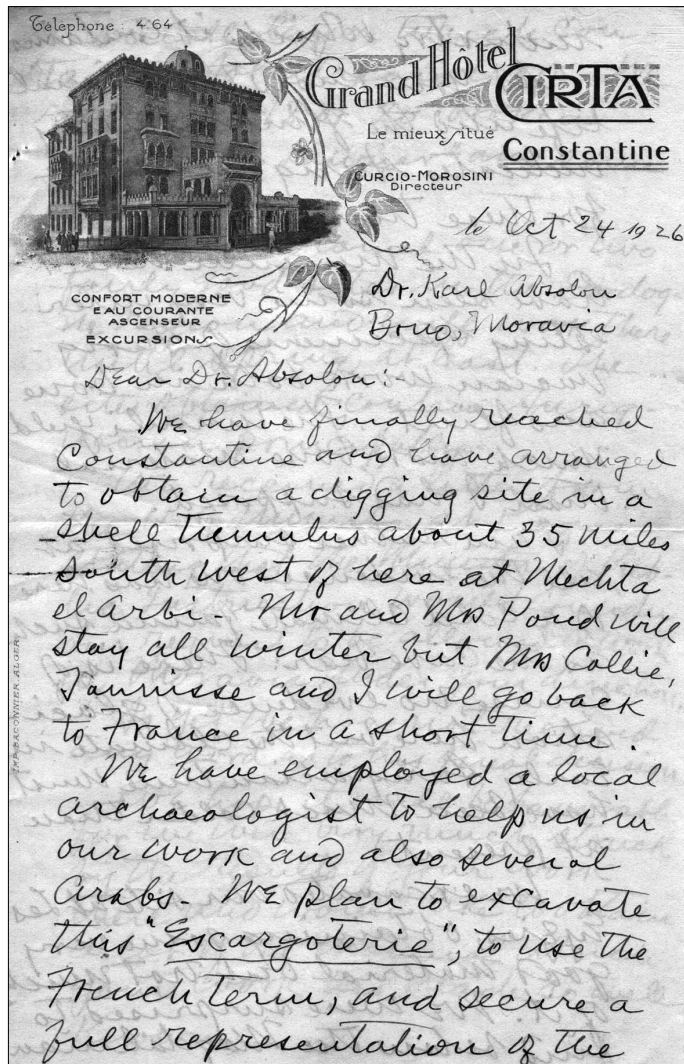 Téléphone : 4.64
Grand Hôtel
CIRTA
Le mieux situé
Constantine
CURCIO-MOROSINI
Directeur
le Oct 24 1926
CONFORT MODERNE
EAU COURANTE
ASCENSEUR
EXCURSIONS
Dr. Karl Absolon
Brno, Moravia
Dear Dr. Absolon:-
We have finally reached
Constantine and have arranged
to obtain a digging site in a
shell tumulus about 35 miles
south west of here at Mechta
el Arbi - Mr and Mrs Pond will
stay all winter but Mrs Collie,
Tounisse and I will go back
to France in a short time.
We have employed a local
archaeologist to help us in
our work and also several
Arabs - We plan to excavate
this "Escargoterie", to use the
French term, and secure a
full representation of the
IMP. BACONNIER. ALGER